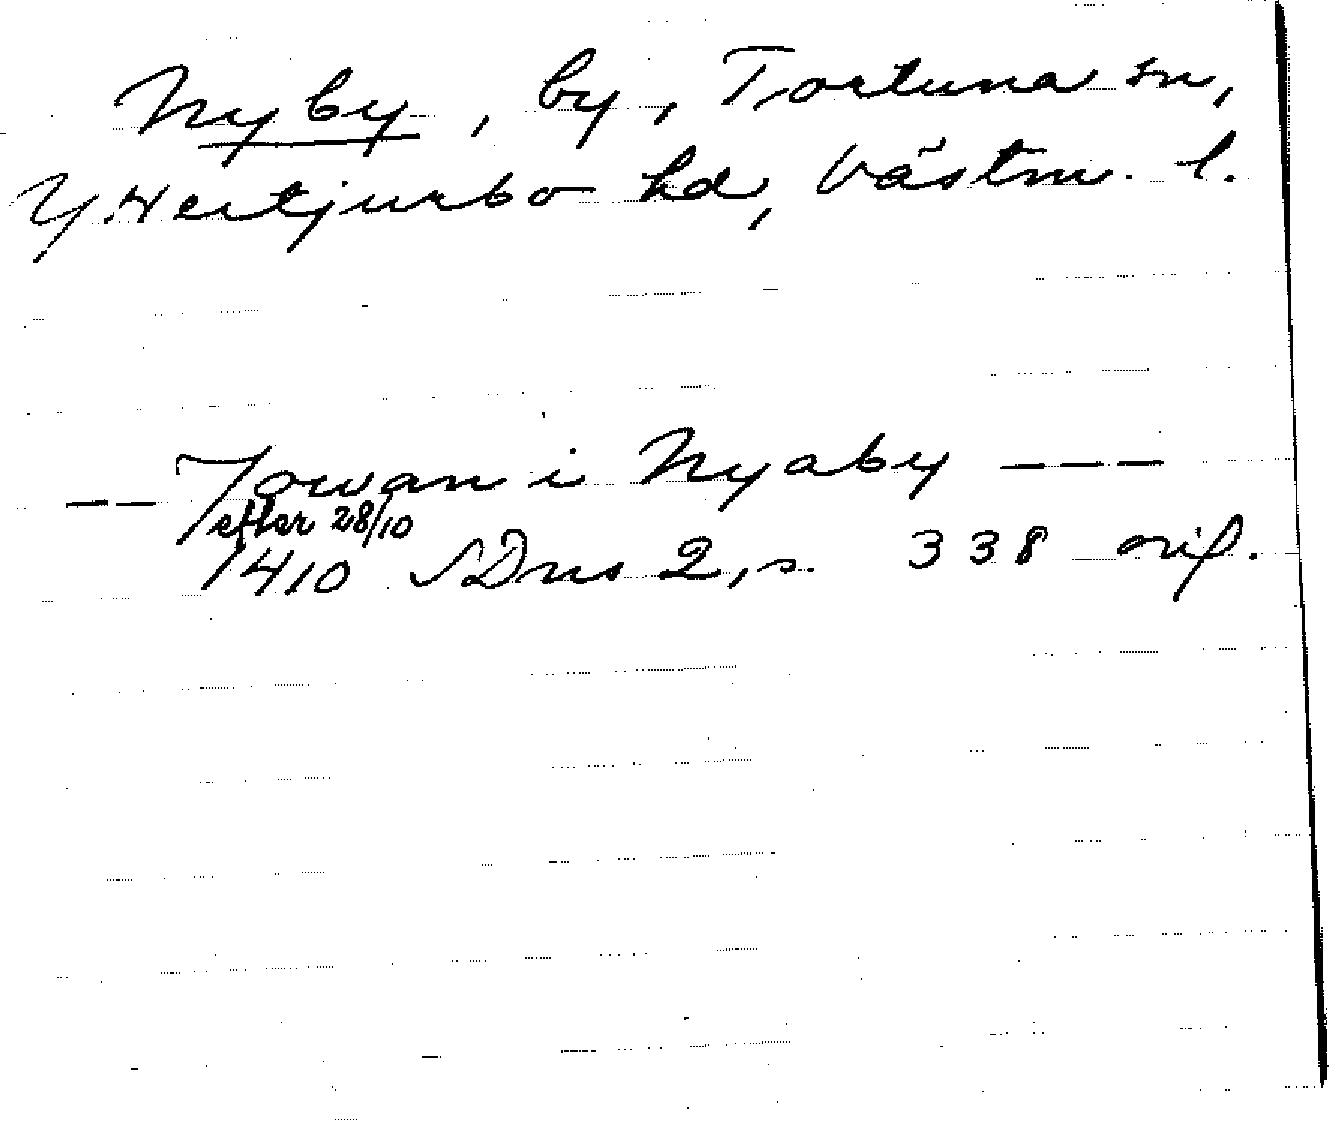 Nyby, by, Tortuna sn,
Y. Hertjurbo hd, Västm. l.
-- Jowan i Nyaby ---
efter 28/10
1410 SDns 2, s. 338 orig.